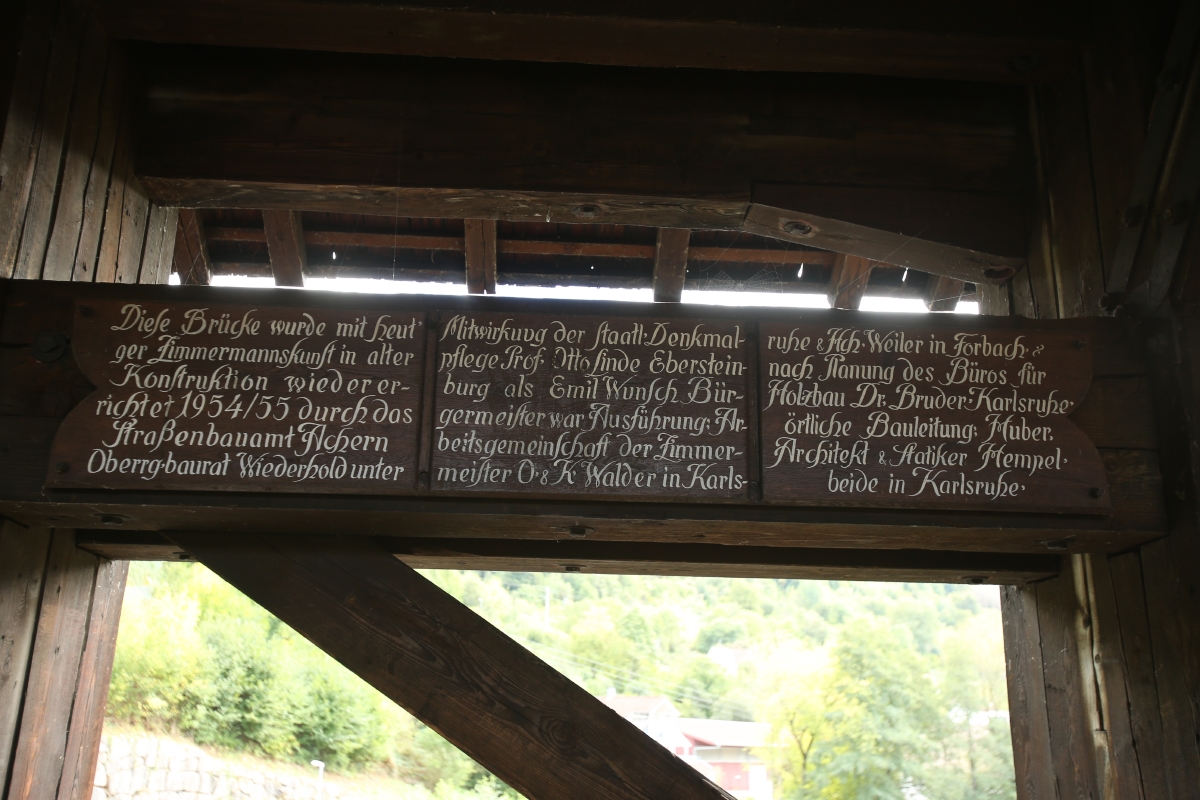 Diese Brücke wurde mit heut'
ger Zimmermannskunst in alter
Konstruktion wieder er-
richtet 1954/55 durch das
Straßenbauamt Achern
Oberrg.baurat Wiederhold unter
Mitwirkung der staatl. Denkmal-
pflege. Prof. Otto Linde Eberstein-
burg als Emil Wunsch Bür-
germeister war Ausführung: Ar-
beitsgemeinschaft der Zimmer-
meister O. & K. Walder in Karls-
ruhe & Ach. Weiler in Forbach.
nach Planung des Büros für
Holzbau Dr. Bruder Karlsruhe,
örtliche Bauleitung: Huber,
Architekt & Statiker Hempel,
beide in Karlsruhe.